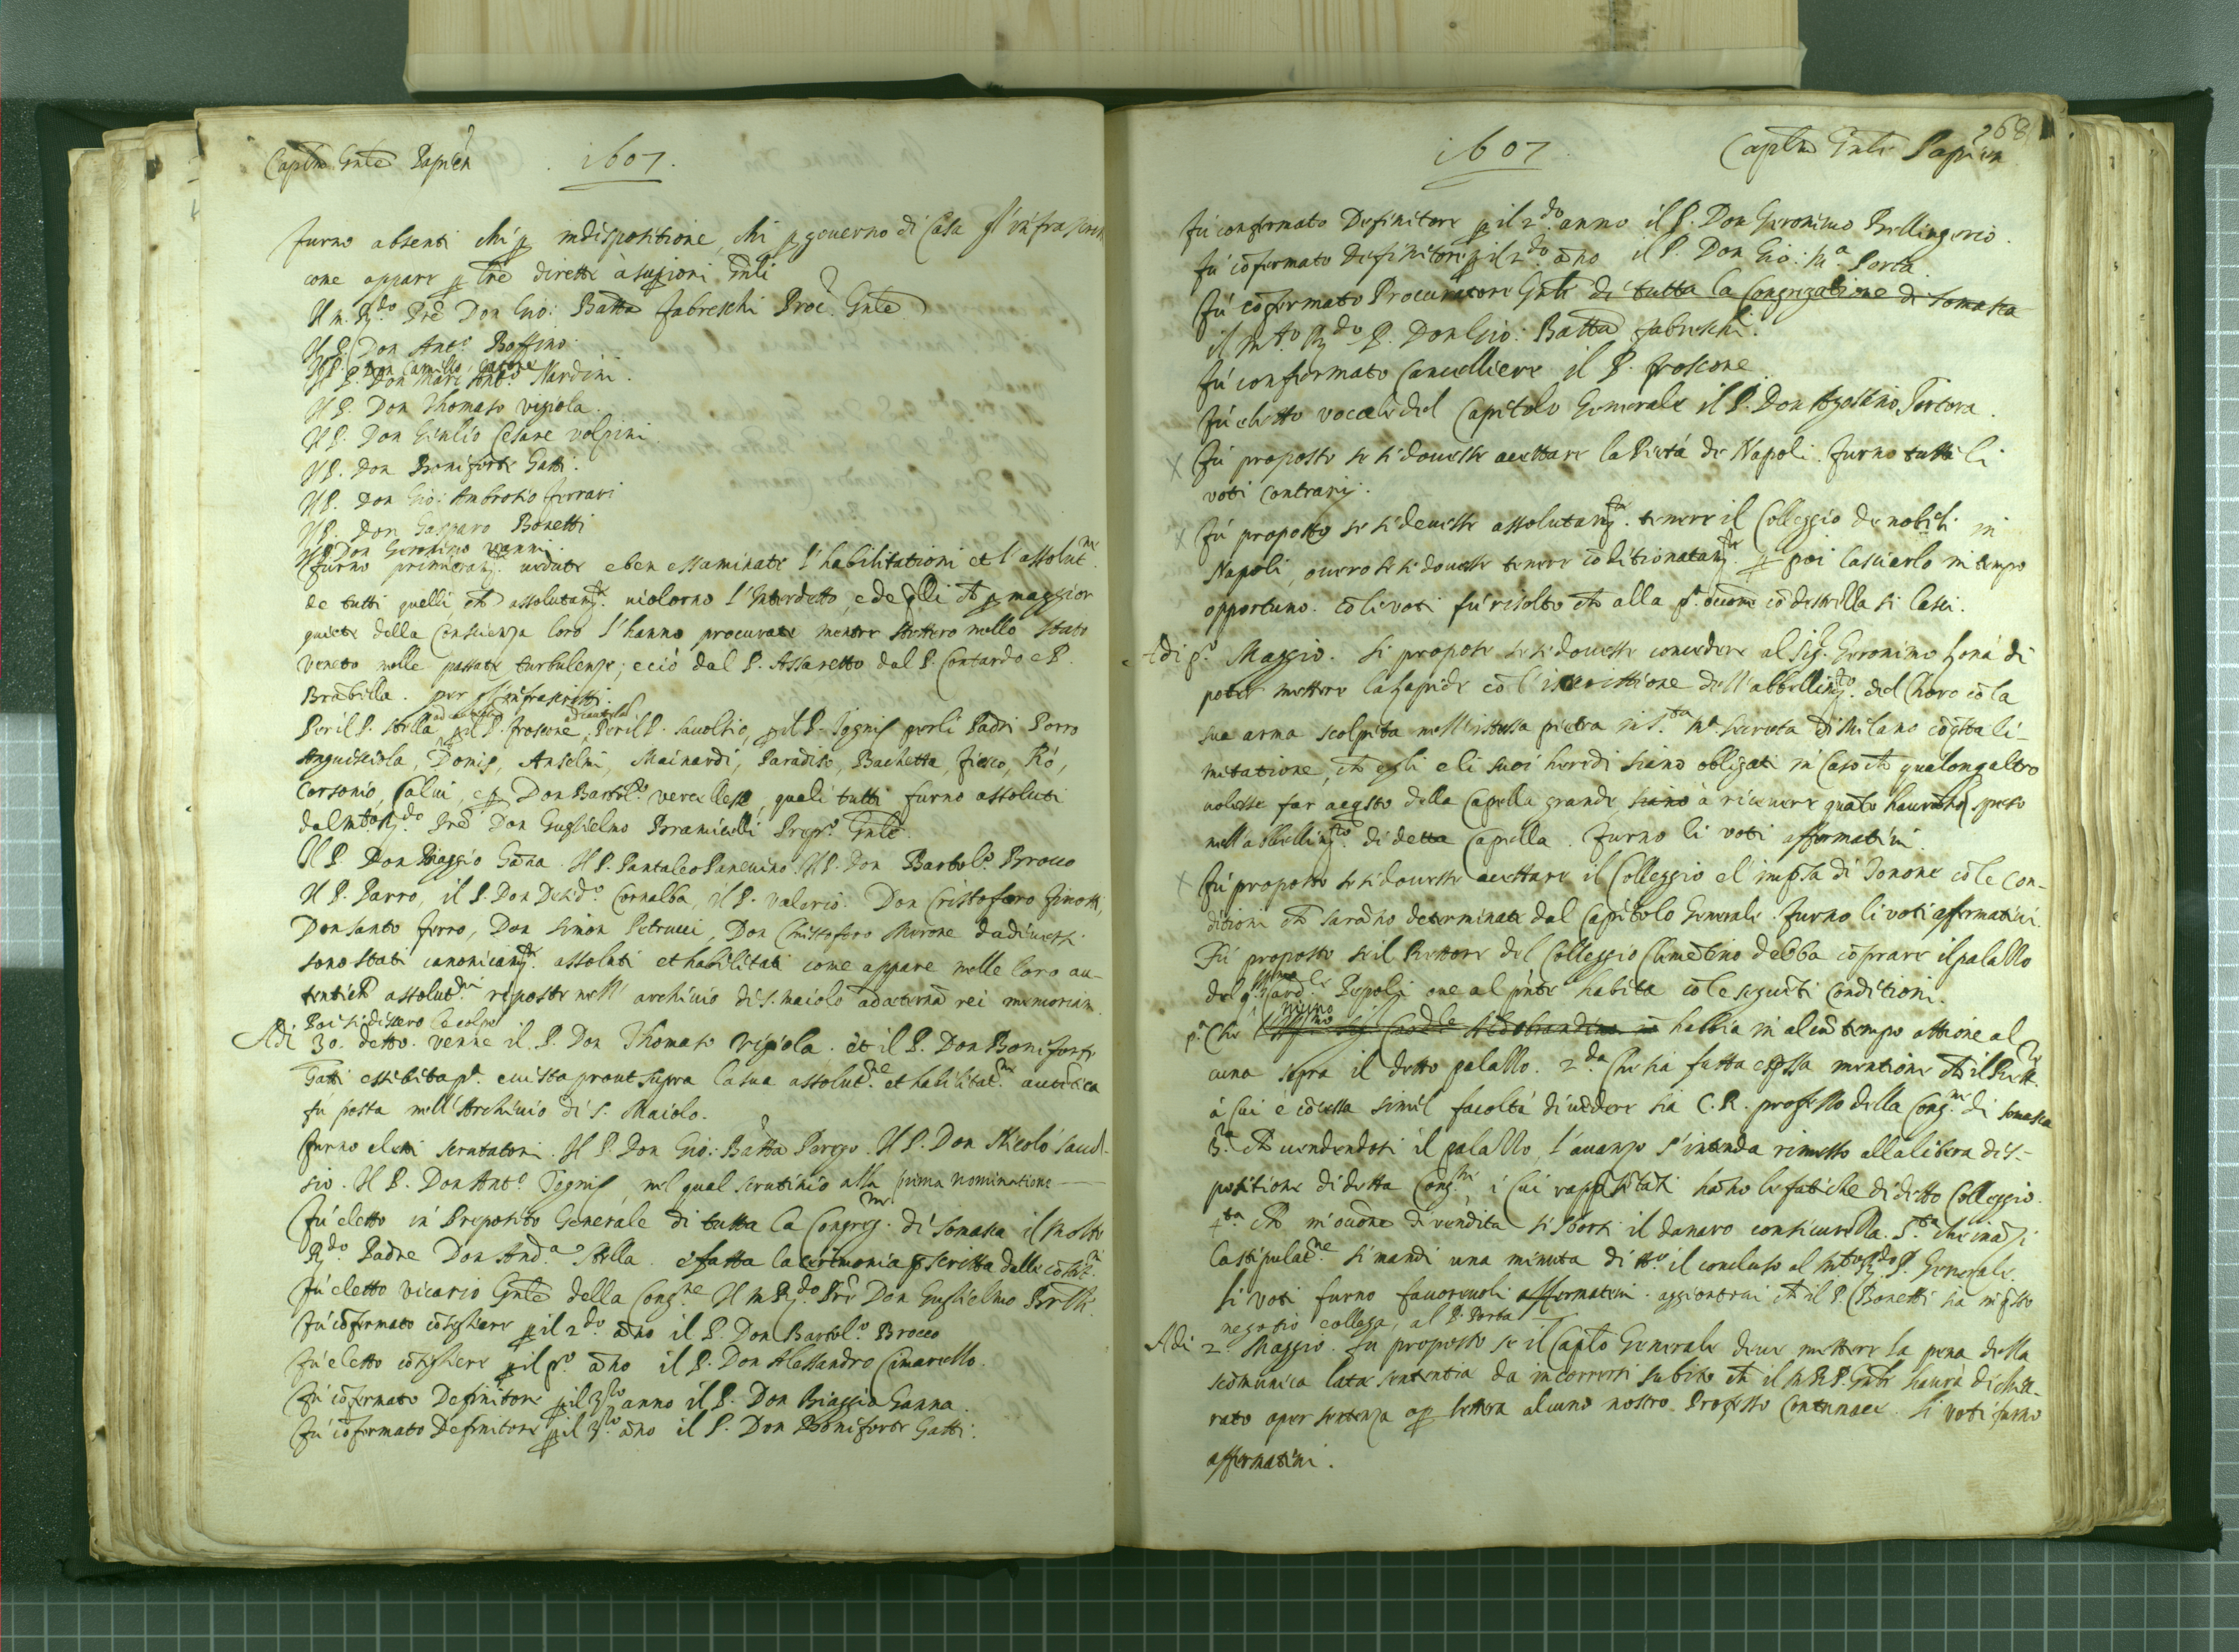 Caplo Gnle Papien
.1607.
furno absenti chi p indispositione, chi p governo di Casa gl'infrascritti
come appare p lre dirette à superiori Gnli
Il m. Rdo Pre Don Gio: Batta fabreschi Proc. Gnle
Il P. Don Anto Boffino
Il P. Don Camillo
Il P. Don Marc Anto Nardini.
Il P. Don Thomaso vigiola.
Il P. Don Giulio Cesare volpini
Il P. Don Boniforte Gatti.
Il P. Don Gio: Ambrosio ferrari
Il P. Don Gasparo Bonetti
Il P. Don Geronimo vanni.
furno primieramte. vedute e ben essaminate l'habilitationi et l'assolutne.
de tutti quelli, ch assolutamte. violorno l'Interdetto, e degli ch p maggior
quiete della Conscienza loro l'hanno procurate mentre stettero nello stato
veneto nelle passate turbulenze; e ciò dal P. Assaretto dal P. Contardo e P.
Brabilla. per gl'infrascritti.
Per il P. stella ad cautela, p il P. froscone ad cautela, Per il P. Savoltio, p il P. Tegnis per li Padri Porro
Anguisciola, Domis, Anselmi, Mainardi, Paradiso, Bachetta, fiesco, Ró,
Corsonio, Calvi, e p Don Bartolo. vercellese, quali tutti furno assoluti
dal mto Rdo. Pre Don Guglielmo Bramicelli Prepo. Gnle.
Il P. Don Biaggio Gana. Il P. Pantaleo Panevino. Il P. Don Bartolo. Brocco
Il P. Parro, il P. Don Desido. Cornalba, il P. Valerio. Don Cristoforo finotti,
Don Santo ferro, Don Simon Petrucci, Don Christoforo Mirone da diversi
sono stati canonicamte. assoluti et habilitati come appare nelle loro au-
tentich assolutni riposte nell' archivio di S. Maiolo ad aeterna rei memoriam.
Poi si dissero le colpe
Adi 30. detto. venne il P. Don Thomaso vigiola. et il P. Don Boniforte
Gatti essibita pa. e vista prout supra la sua assolutne. et habilitatne. autetica
fù posta nell' Archivio di S. Maiolo.
furno eletti scrutatori. Il P. Don Gio: Batta Perego. Il P. Don Nicolò Savol-
sio. Il P. Don Anto. Tegnis, nel qual scrutinio alla prima nominatione
Fù eletto in Preposito Generale di tutta la Congregne. di Somasca il Molto
Rdo Padre Don Anda. Stella. e fatta la cerimonia pscritta dalle costitni.
Fù eletto vicario Gnle della Congne. Il m Rdo. Pre Don Guglielmo Brlli.
Fù cofermato cosigliere p il 2do. ano il P. Don Bartolo. Brocco
Fù eletto cosigliere p il po. ano il P. Don Alessandro Cimarello.
Fù cofermato Definitore p il 3zo anno il P. Don Biaggio Ganna.
Fù cofermato Definitore p il 3zo ano il P. Don Boniforte Gatti.
268
1607
Caplo Gnle Papien
Fù confermato Definitore p il 2do anno il P. Don Geronimo Bellingerio.
Fù cofermato Definitore p il 2do ano il P. Don Gio: Ma. Porta.
Fù cofermato Procuratore Gnle di tutta la Congregatione di Somasca
il Mto. Rdo P. Don Gio: Batta fabreschi.
Fù confirmato Cancelliere il P. froscone.
Fù eletto vocale del Capitolo Generale il P. Don Agostino Tortora.
X Fù proposto se si dovesse accettare la Pietà de Napoli. furno tutti li
voti contrarij.
X Fù proposto se si devesse assolutamte. tenere il Colleggio de nobili in
Napoli, overo se si dovesse tenere coditionatamte. p poi lasciarlo in tempo
opportuno. co li voti fù risolto ch alla pa. occone co destrezza si lasci.
Adi po. Maggio. Si propose se si dovesse concedere al Sigr. Geronimo honà di
poter mettere la lapide co l'iscrittione dell' abbellimto. del Choro co la
sua arma scolpita nell' istessa pietra in Sta Ma. Secreta di Milano co qsta li-
mitatione, ch egli e li suoi heredi siano obligati in Caso ch qualonq altro
volesse far acqsto della Capella grande siano à ricevere quato haverano speso
nell' abbellimto. di detta Capella. furno li voti affermativi.
X Fù proposto se si dovesse accettare il Colleggio el impsa di Tonone co le con-
ditioni ch sarano determinate dal Capitolo Generale. furno li voti affermativi.
Fù proposto se il Rettore del Colleggio Clemetino debba coprare il palazzo
del qm Cardle Pepoli ove al pnte habita co le segueti conditioni.
pa. Che niuno Illmo Sig Cardle Aldobrandino in habbia in alcu tempo attione al
cuna sopra il detto palazzo. 2da. Che sia fatta espssa mentione ch il Rettre.
à cui è cocessa simil facoltà di vedere sia C. R. professo della Congne. di Somasca
3a. Ch vendendosi il palazzo l'avanzo s'intenda rimesso alla libera dis-
positione di detta Congne, i cui rappsetati hano le fatiche di detto Colleggio.
4ta. Ch in occone di vendita si sborsi il danaro con sicurezza. 5ta. che inazi
la stipulatne si mandi una minuta di tto. il concluso al Mto Rdo P. Generale.
li voti furno favorevoli affermativi. aggiontovi ch il P. Bonetti sia in qsto
negotio collega, al P. Porta
Adi 2. Maggio. Fu proposto se il Caplo Generale deve mettere la pena della
scomunica latae sententiae da incorrersi subito ch il M. R. P. Gnle haurà dichia-
rato o per sentenza o p lettera alcuno nostro Professo Contumace. li voti furno
affirmativi.